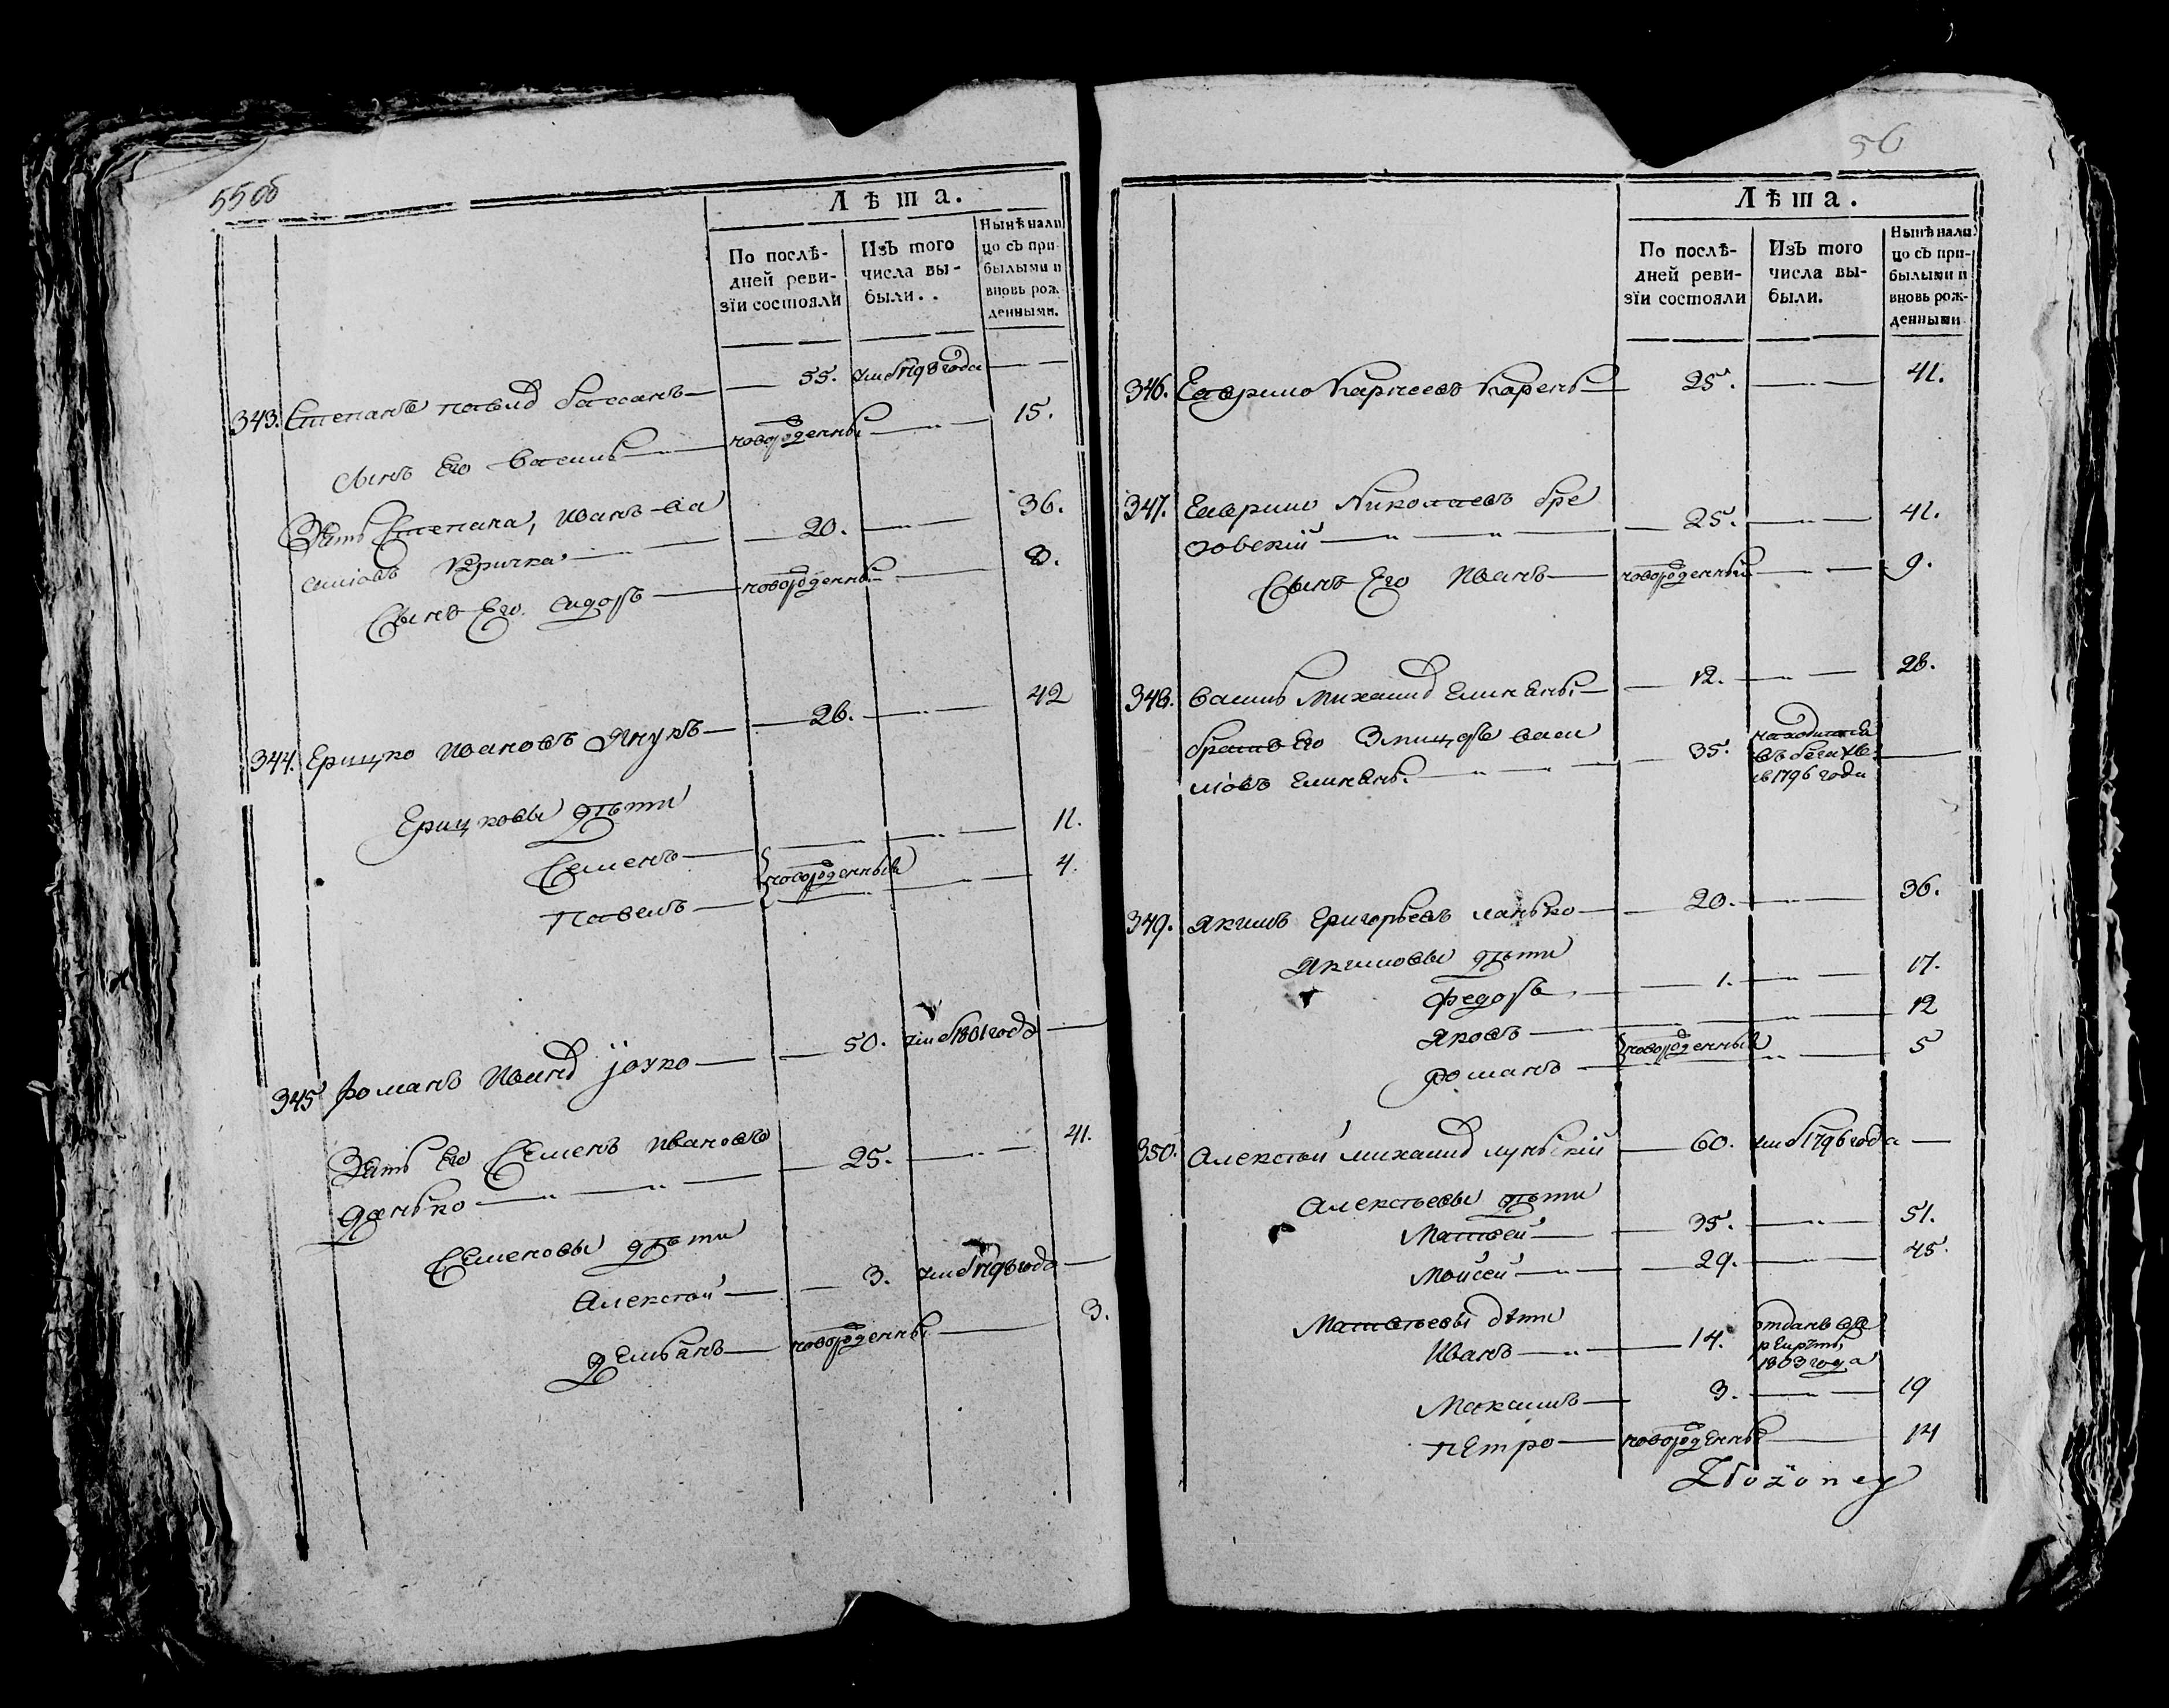 55 об
Лѣта.
По послѣ-
дней реви-
зїи состояли
Изъ того
числа вы-
были..
Нынѣ нали
цо съ при-
былыми и
вновь рож-
денными.
343. Степанъ 55. 1798 года —
Сынъ Его Василь — новорожденный — 15.
Зять Степана, Иванъ Ва
силіовъ Кричка — 20. — 36.
Сынъ Его Сидоръ — новорожденный — 8.
344. Грицко Ивановъ Янукъ — 26. — 42
Грицковы дѣти
Семенъ — новорожденныя — 11.
Павелъ — 4.
345 Романъ 50. 1801 года —
Зять Его Семенъ Ивановъ
Данько — 25. — 41.
Семеновы дѣти
Алексѣй — 3. —
Демьянъ — новорожденный — 3.
56
Лѣта.
По послѣ-
дней реви-
зїи состояли
Изъ того
числа вы-
были.
Нынѣ нали
цо съ при-
былыми и
вновь рож-
денными
346. Гаврило Карпеевъ — 25. — 41.
347. Гаврило Николаевъ бре
зовскій — 25. — 41.
Сынъ Его Иванъ — новорожденный — 9.
348. Василь — 12. — 28.
братъ Его васи
ліовъ — 35. находится
въ бегахъ
1796 года —
349. Якимъ Григорьевъ ланько — 20. — 36.
Якимовы дѣти
Федоръ — 1. — 17.
Яковъ — новорожденныя — 12
Романъ — 5
350. Алексѣй 60. 1796 года —
Алексѣевы дѣти
Матвей — 35. — 51.
Мойсей — 29. — 45.
Матвѣевы дѣти
Иванъ — 14. отданъ въ
рекрты
1803 года
Максимъ — 3. — 19
Петро — новорожденный — 14
Złożoney